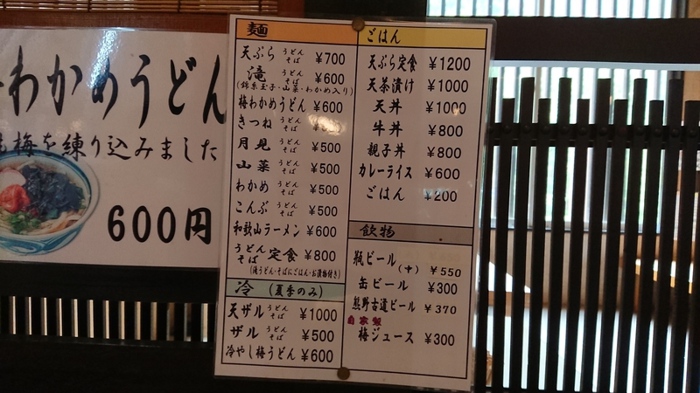 わかめうどん
梅を練り込みました
600円
麺
天ぷら うどん そば ¥700
滝 うどん そば ¥600
(錦糸玉子・山菜・わかめ入り)
梅わかめうどん ¥600
きつね うどん そば
月見 うどん そば ¥500
山菜 うどん そば ¥500
わかめ うどん そば ¥500
こんぶ うどん そば ¥500
和歌山ラーメン ¥600
うどん そば 定食 ¥800
(滝うどん・そばにごはん・お漬物付き)
冷 (夏季のみ)
天ザル うどん そば ¥1000
ザル うどん そば ¥500
冷やし梅うどん ¥600
ごはん
天ぷら定食 ¥1200
天茶漬け ¥1000
天丼 ¥1000
牛丼 ¥800
親子丼 ¥800
カレーライス ¥600
ごはん ¥200
飲物
瓶ビール (中) ¥550
缶ビール ¥300
熊野古道ビール ¥370
自家製
梅ジュース ¥300